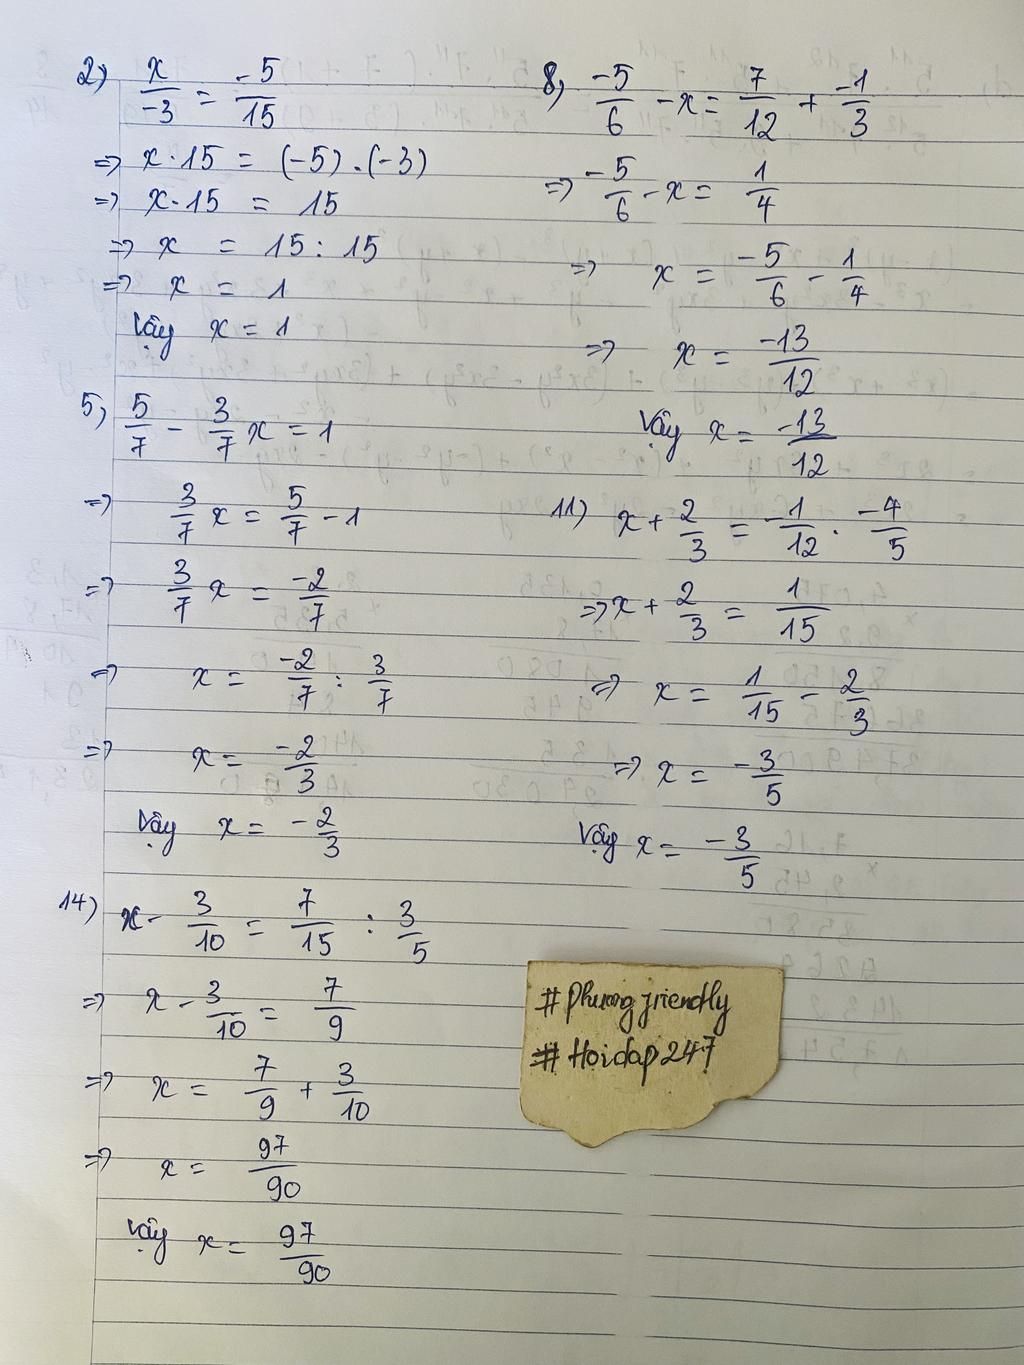 2) x/-3 = -5/15
=> x . 15 = (-5) . (-3)
=> x . 15 = 15
=> x = 15 : 15
=> x = 1
Vậy x = 1
5) 5/7 - 3/7 x = 1
=> 3/7 x = 5/7 - 1
=> 3/7 x = -2/7
=> x = -2/7 : 3/7
=> x = -2/3
Vậy x = -2/3
14) x - 3/10 = 7/15 : 3/5
=> x - 3/10 = 7/9
=> x = 7/9 + 3/10
=> x = 97/90
Vậy x = 97/90
8) -5/6 - x = 7/12 + -1/3
=> -5/6 - x = 1/4
=> x = -5/6 - 1/4
=> x = -13/12
Vậy x = -13/12
11) x + 2/3 = -1/12 . -4/5
=> x + 2/3 = 1/15
=> x = 1/15 - 2/3
=> x = -3/5
Vậy x = -3/5
# Phuongfriendly
# Hoidap247